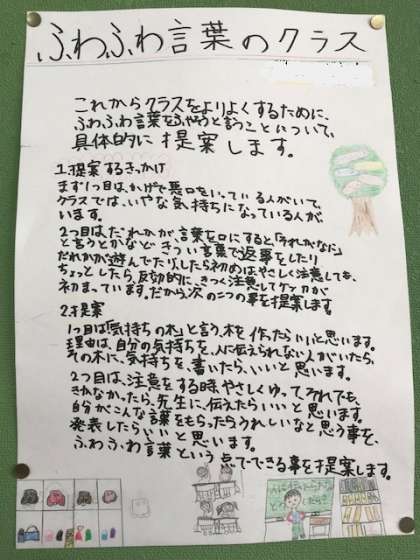 ふわふわ言葉のクラス
これからクラスをよりよくするために、
ふわふわ言葉をふやそうと言うことについて、
具体的に提案します。
1.提案するきっかけ
まず1つ目は、かげで悪口をいっている人がいて、
クラスでは、いやな気持ちになっている人が
います。
2つ目は、だれかが言葉を口にすると、「それがなに」
と言うとかなどきつい言葉で返事をしたり
だれかが遊んでたりしたら初めは、やさしく注意しても、
ちょっとしたら反効的に、きつく注意してケンカが
初まっています。だから、次の二つの事を提案します。
2.提案
1つ目は「気持ちの木」と言う、木を作ったらいいと思います。
理由は、自分の気持ちを、人に伝えられない人がいたら、
その木に、気持ちを、書いたら、いいと思います。
2つ目は、注意をする時、やさしくゆって、それでも、
きかなかったら、先生に、伝えたらいいと思います。
自分がこんな言葉をもらったらうれしいなと思う事を、
発表したらいいと思います。
ふわふわ言葉という点でできる事を提案します。